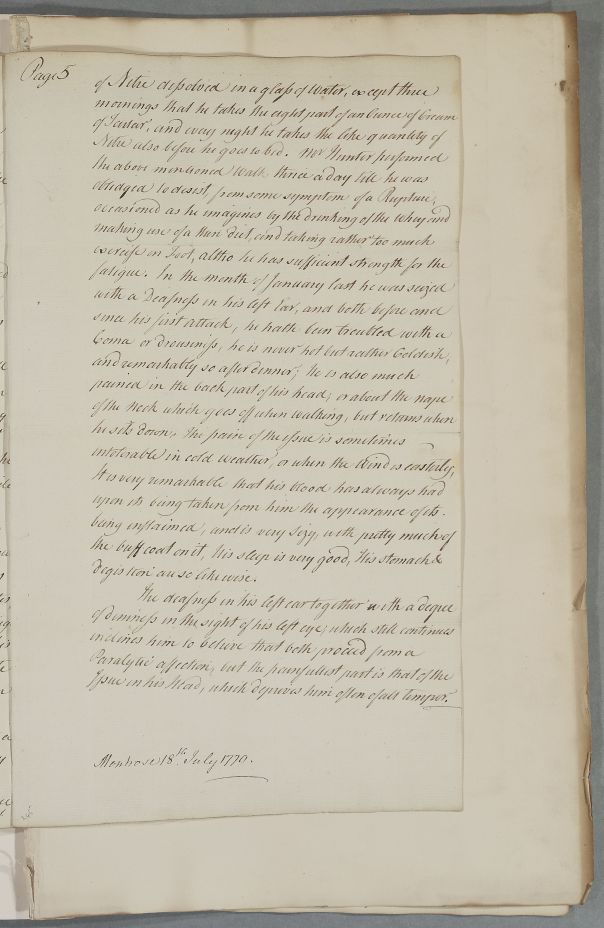 Page 5
of Nitre dissolved in a glass of Water, except three
mornings that he takes the eight part of an Ounce of Cream
of Tartar, and every night he takes the like quantity of
Nitre also before he goes to bed. Mr Hunter performed
the above mentioned Walk thrice a day till he was
obledged to desist, from some symptom of a Rupture,
occasioned as he imagines by the drinking of the whey and
making use of a thin diet, and taking rather too much
exercise on Foot, altho he has sufficient strength for the
fatigue. In the month of January last he was seized
with a Deafness in his left Ear, and both before and
since his first attack, he hath been troubled with a
Coma or drousiness, he is never hot but rather Coldish,
and remarkably so after dinner; He is also much
pained in the back part of his head, or about the nape
of the Neck which goes off when walking, but returns when
he sits down. The pain of the issue is sometimes
intolerable in cold weather, or when the Wind is easterly,
It is very remarkable that his blood has always had
upon its being taken from him the appearance of its
being inflamed, and is very sizy, with pretty much of
the buff coat on it, his sleep is very good, His stomach &
degistion are so likewise.
The deafness in his left ear together with a degree
of dimness in the sight of his left eye, which still continues
inclines him to believe that both proceed from a
Paralytic affection, but the painfullest part is that of the
Issue in his Head, which deprives him often of all temper.
Monrose 18th. July 1770.